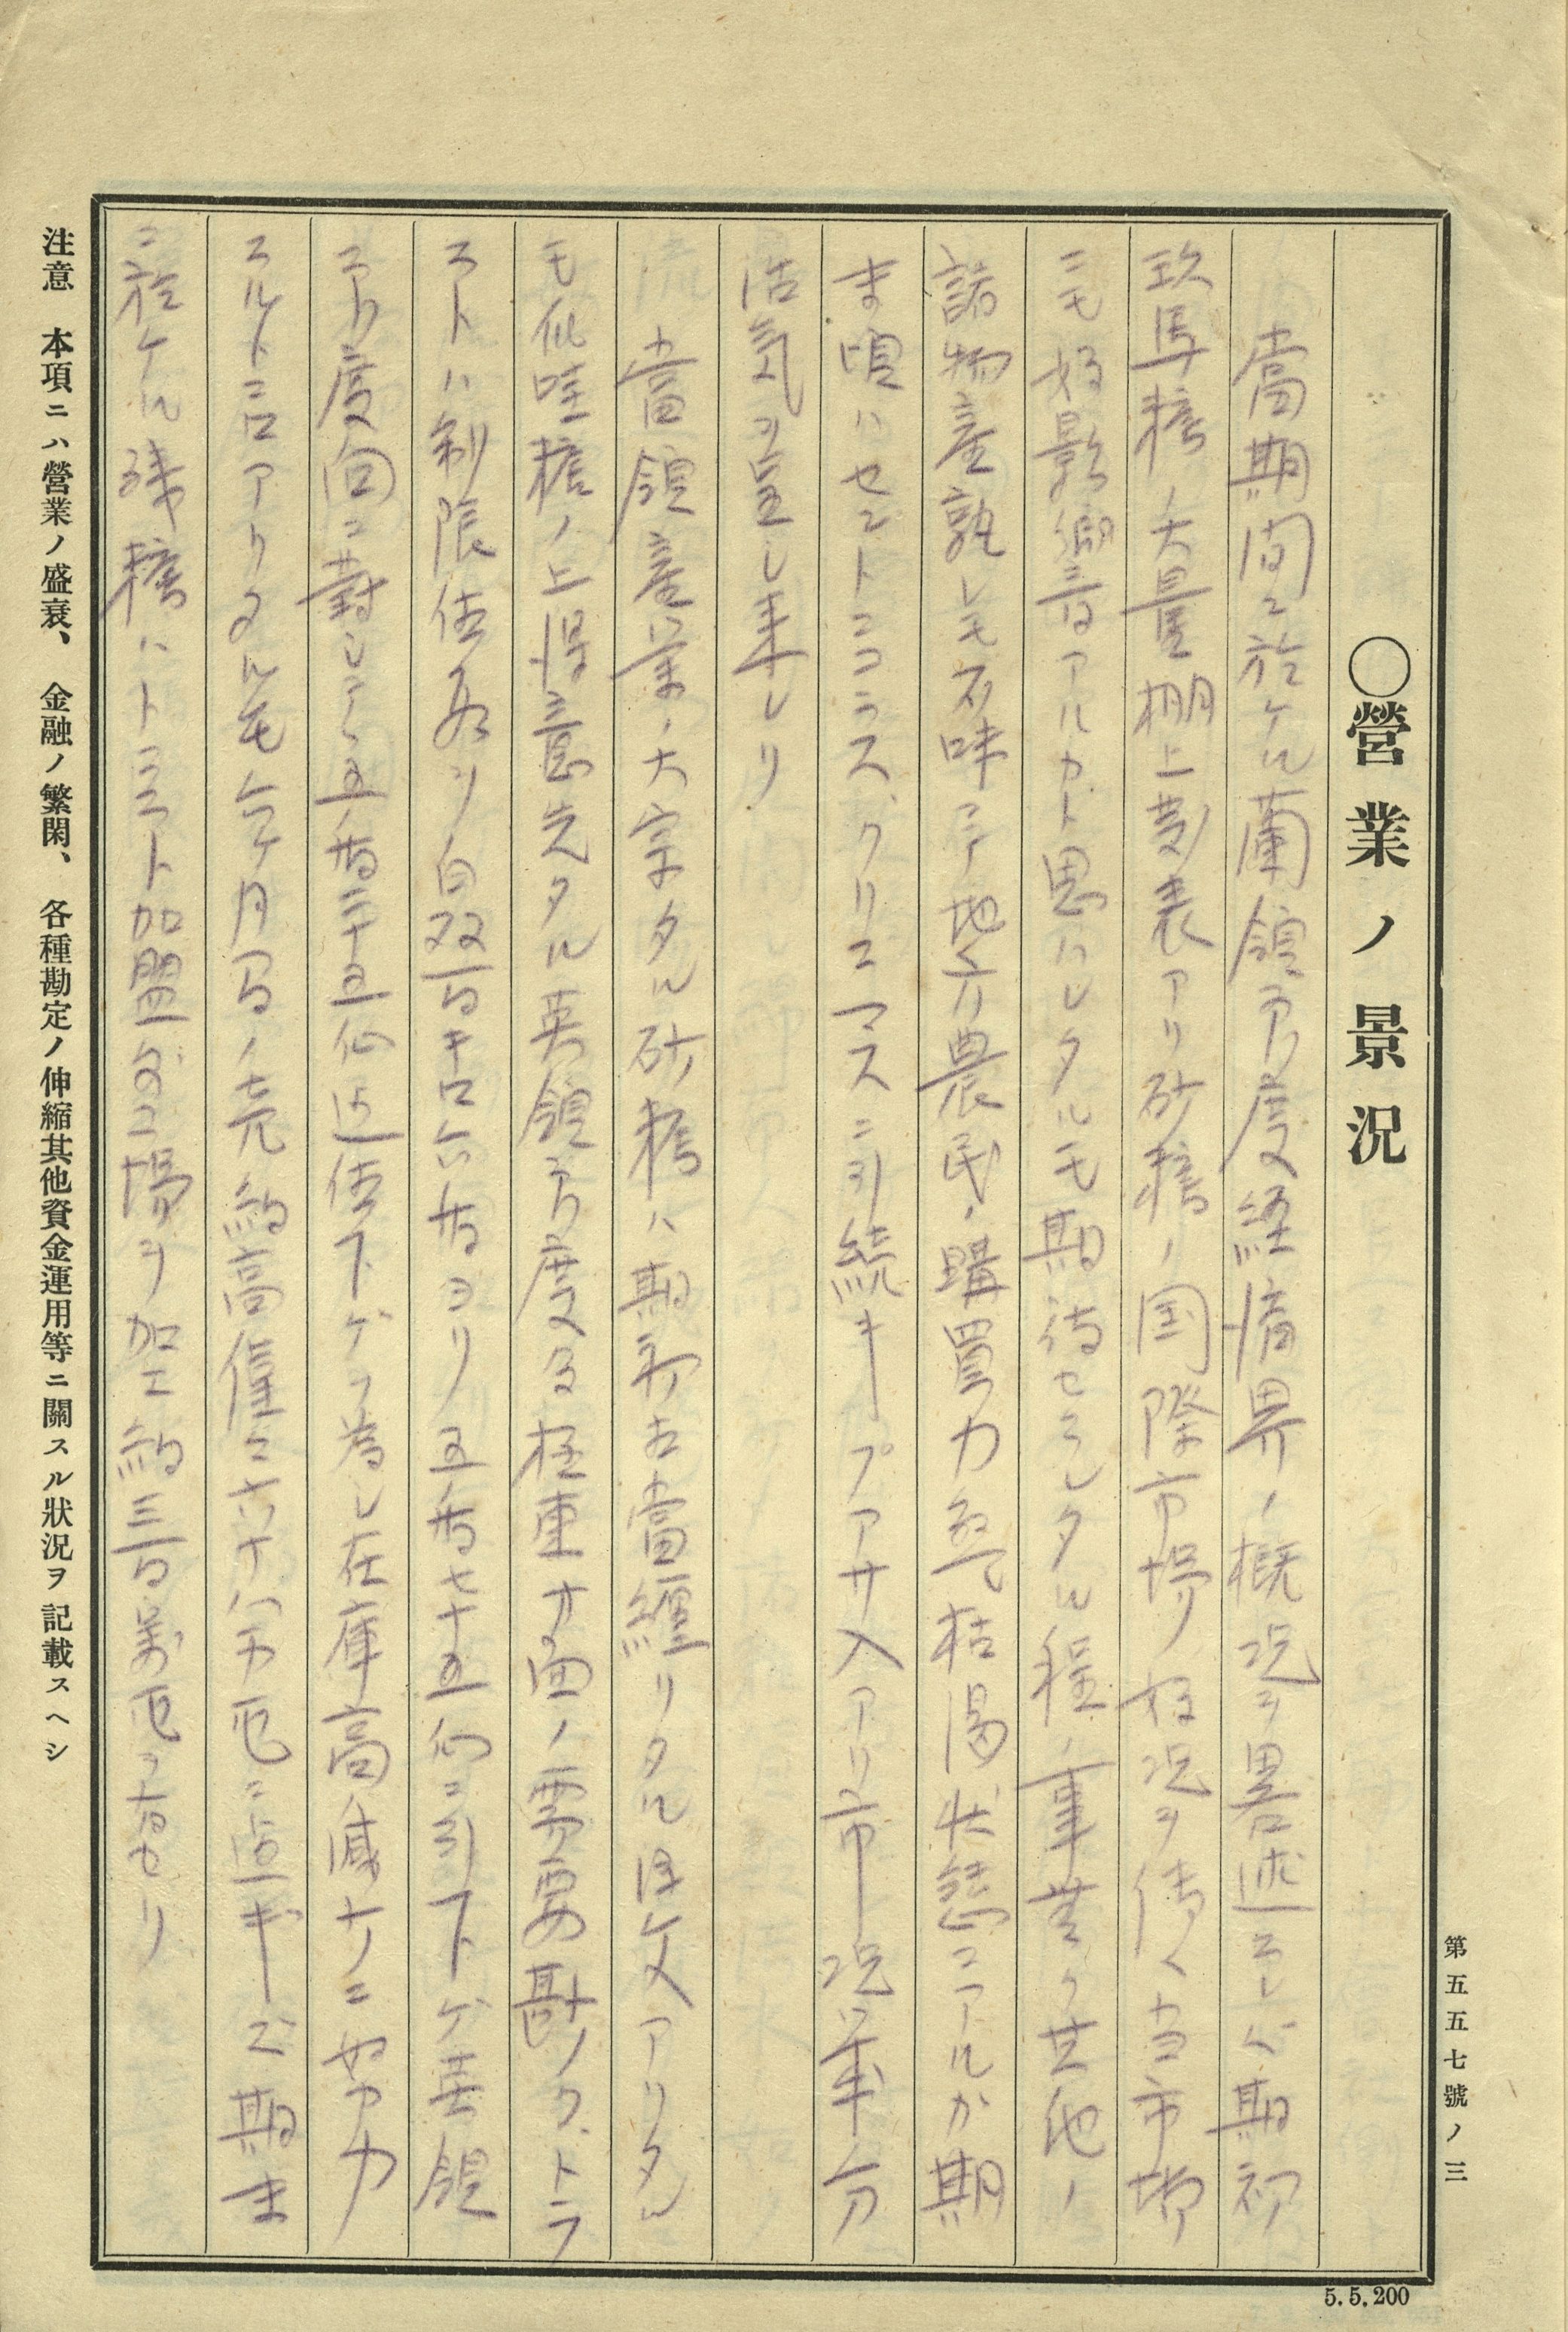 第五五七號ノ三
○營業ノ景況
當期間ニ於ケル蘭領印度経済界ノ概況ヲ畧述スレバ期初
玖馬糖ノ大量棚上発表アリ砂糖ノ国際市場好況ヲ傳ヘ当市場
ニモ好影響アルカト思ハレタルモ期待セラレタル程ノ事無ク其他ノ
諸物産孰レモ不味ニテ地方農民ノ購買力無ク枯渇状態ニアルカ期
末頃ハセントニコラス、クリスマスニ引続キプアサ入アリ市況業分
活気ヲ呈シ来レリ
當領産業ノ大宗タル砂糖ハ期初相當纏リタル注文アリタル
モ爪哇糖ノ上得意先タル英領印度及極東方面ノ需要尠ク、トラ
ストハ制限値段ヲ白双百キロ六盾ヨリ五盾七十五仙ニ引下ゲ英領
印度向ニ對シテハ五盾二十五仙迄値下ゲヲ為シ在庫高減少ニ努力
スルト言アリタルモ六ケ月間ノ売約高僅ニ六十八万屯ニ過ギズ期末
ニ於ケル残糖ハトラスト加盟外工場ヲ加エ約三百萬屯ヲ有セリ
注意 本項ニハ營業ノ盛衰、金融ノ繁閑、各種勘定ノ伸縮其他資金運用等ニ關スル狀況ヲ記載スヘシ
5.5.200